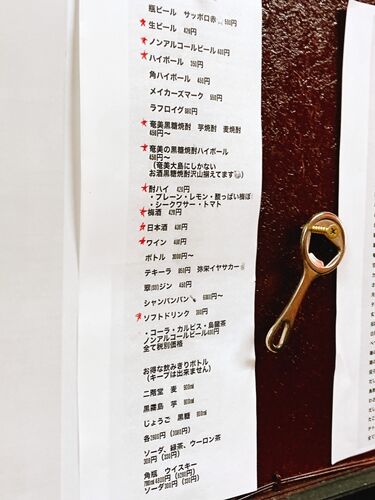 瓶ビール サッポロ赤 550円
★生ビール 420円
★ノンアルコールビール 400円
★ハイボール 350円
角ハイボール 450円
メイカーズマーク 550円
ラフロイグ 880円
★奄美黒糖焼酎 芋焼酎 麦焼酎
450円〜
★奄美の黒糖焼酎ハイボール
450円〜
(奄美大島にしかない
お酒黒糖焼酎沢山揃えてます
★酎ハイ 420円
・プレーン・レモン・酸っぱい梅ぼ
・シークワサー・トマト
★梅酒 420円
★日本酒 430円
★ワイン 400円
ボトル 3000円〜
テキーラ 850円 弥栄イヤサカー
翠(SUI)ジン 450円
シャンパンパン 6000円〜
★ソフトドリンク 300円
・コーラ・カルピス・烏龍茶
ノンアルコールビール400円
全て税別価格
お得な飲みきりボトル
(キープは出来ません)
二階堂 麦 900ml
黒霧島 芋 900ml
じょうご 黒糖 900ml
各2800円(3080円)
ソーダ、緑茶、ウーロン茶
300円(330円)
角瓶 ウイスキー
700ml 4800円(5280円)
ソーダ300円(330円)